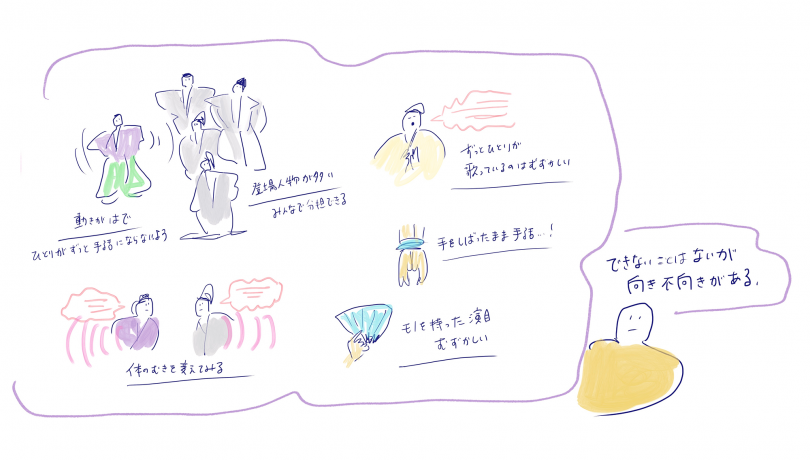 動きがはで
ひとりがずっと手話にならないよう
登場人物が多い
みんなで分担できる
体のむきを変えてみる
ずっとひとりが
歌っているのはむずかしい
手をしばったまま手話…!
モノを持った演目
むずかしい
できないことはないが
向き不向きがある。